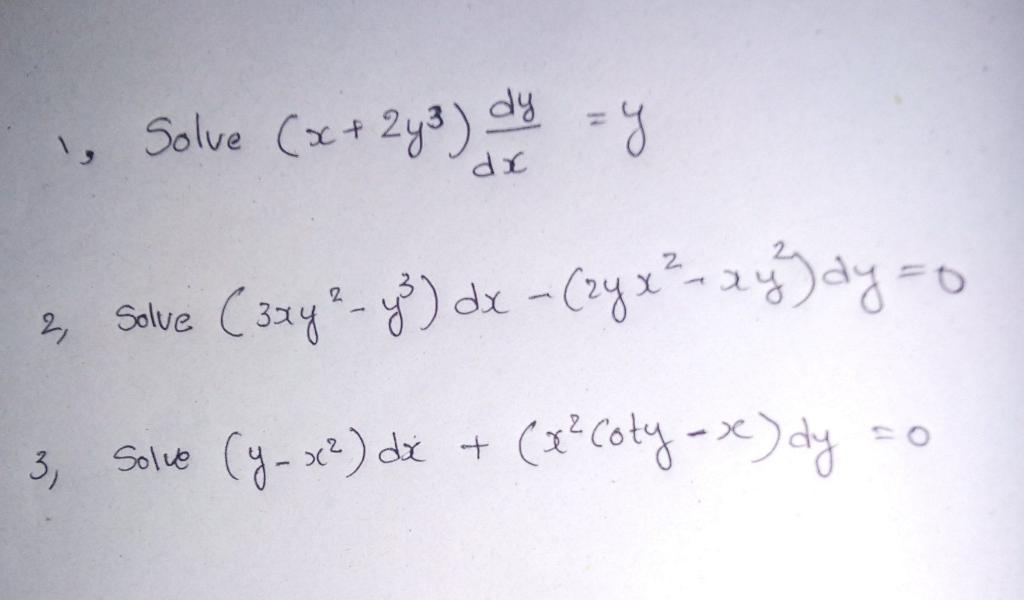 1, Solve (x + 2y³) dy/dx = y
2, Solve (3xy² - y³) dx - (2yx² - xy²) dy = 0
3, Solve (y - x²) dx + (x² Coty - x) dy = 0